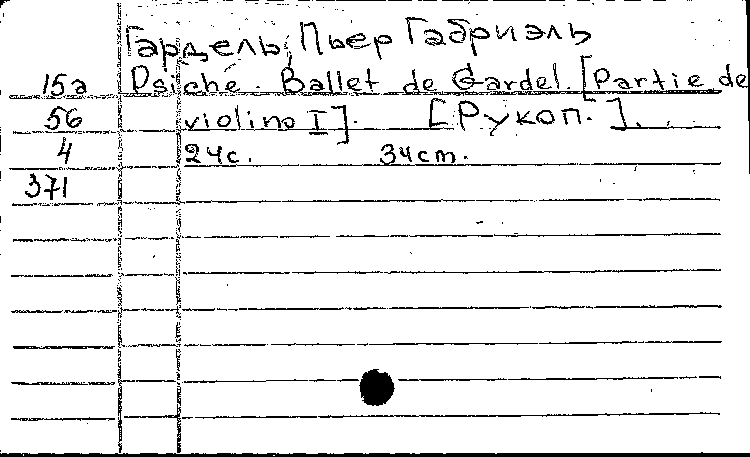 Гардель, Пьер Габриэль
15а Psiché. Ballet de Gardel. [Partie de
56 violino I]. [Рукоп.].
4 24с. 34cm.
371